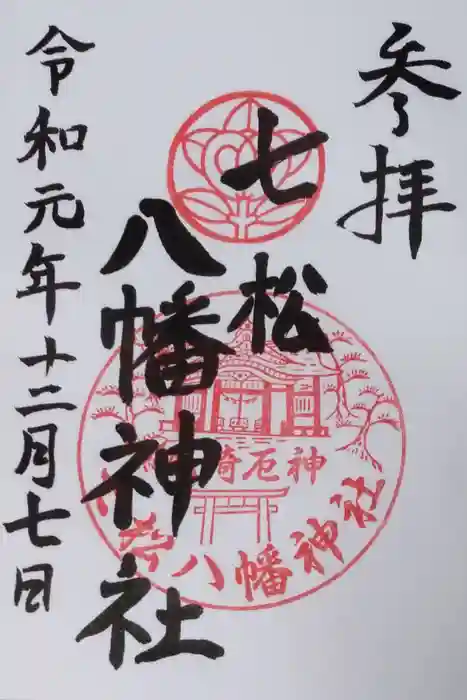 参拝
七松
八幡神社
令和元年十二月七日
琦石神
八幡神社